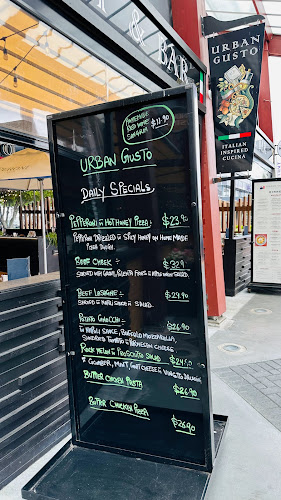 & BAR
HOMEMADE
RED WINE
SANGRIA
$11.90
URBAN GUSTO
DAILY SPECIALS
PEPPERONI & HOT HONEY PIZZA $23.90
PEPPERONI DRIZZLED & SPICY HONEY ON HOME MADE
PIZZA DOUGH.
BEEF CHEEK
SERVED WITH GRAVY, POLENTA FRIES &
BEEF LASAGNE $29.90
SERVED & NAPOLI SAUCE & SALAD.
POTATO GNOCCHI $26.90
IN NAPOLI SAUCE, BUFFALO MOZZARELLA,
SUNDRIED TOMATO & PARMESAN CHEESE.
ROCK MELON & PROSCIUTTO SALAD $24.90
& CUCUMBER, MINT, GOAT CHEESE &
BUTTER CHICKEN PASTA $26.90
BUTTER CHICKEN PIZZA $26.90
URBAN
GUSTO
ITALIAN
INSPIRED
CUCINA